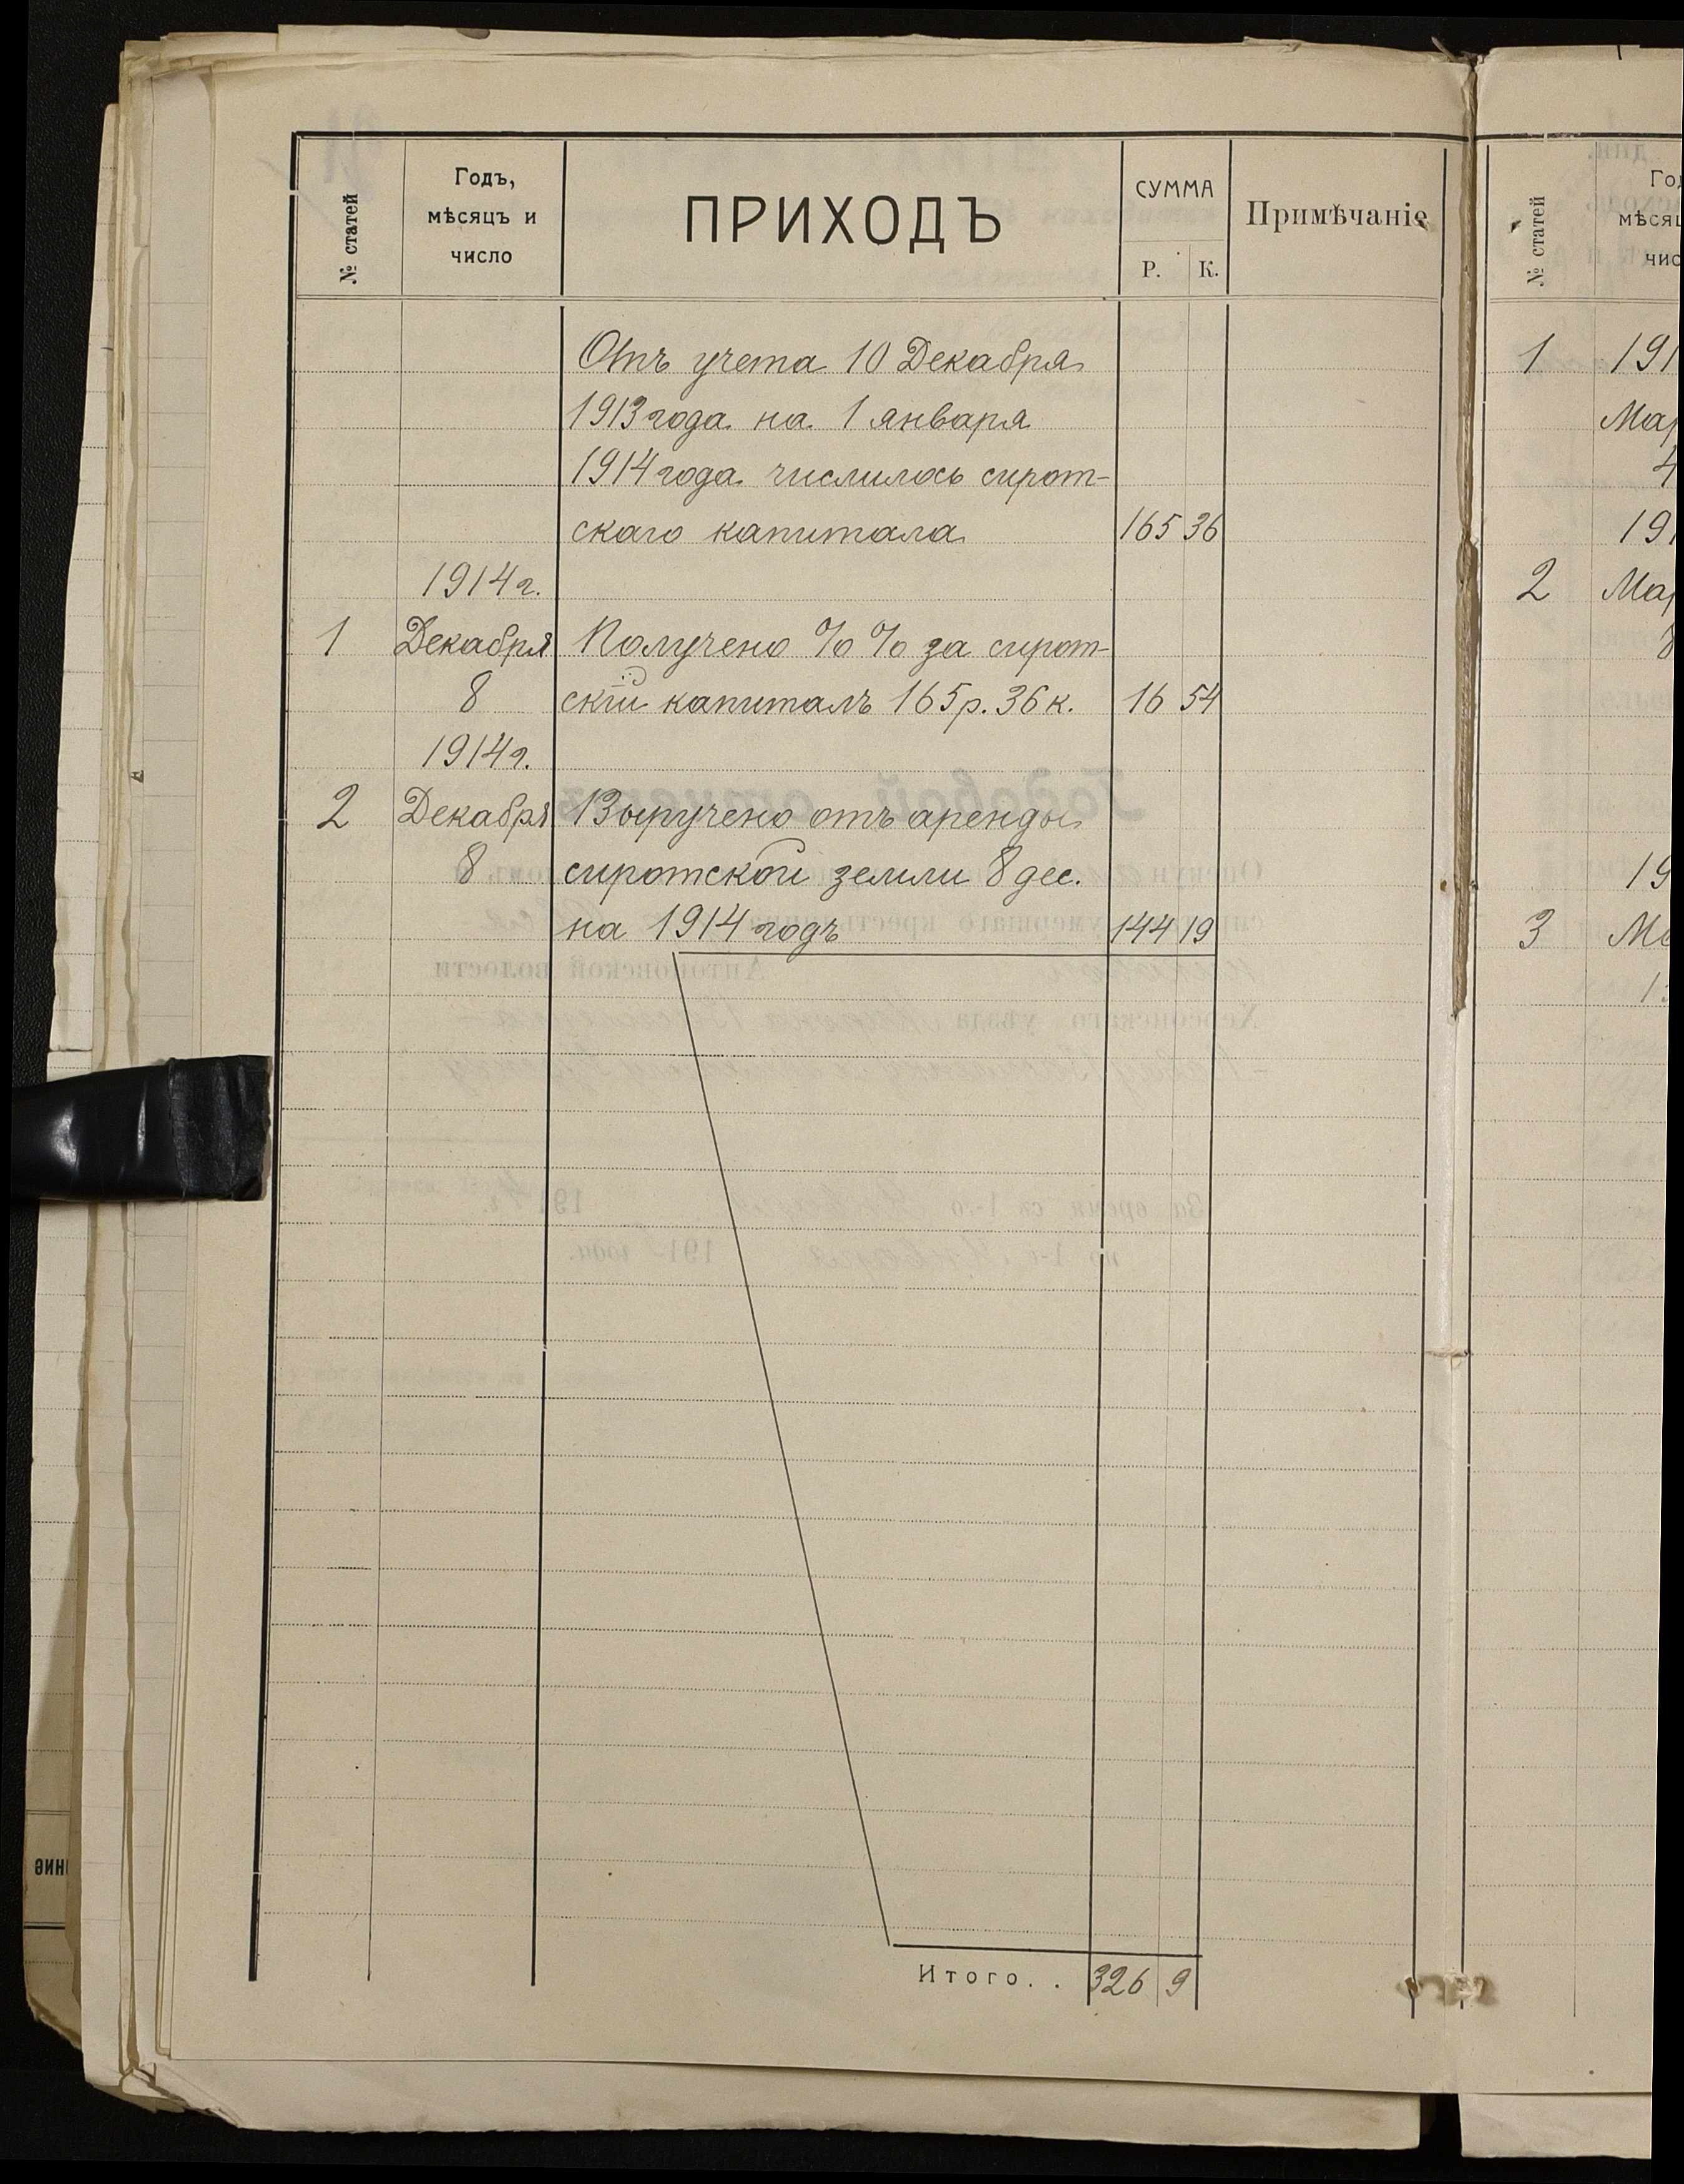 № статей
Годъ,
мѣсяцъ и
число
ПРИХОДЪ
СУММА
Р. К.
Примѣчаніе
Отъ учета 10 Декабря
1913 года на 1 января
1914 года числилось сирот-
скаго капитала 165 36
1914 г.
1 Декабря Получено %% за сирот-
8 скій капиталъ 165 р. 36 к. 16 54
1914 г.
2 Декабря Выручено отъ аренды
8 сиротской земли 8 дес.
на 1914 годъ 144 19
Итого. . 326 9
№ статей
1 191
4
191
2
8
19
3